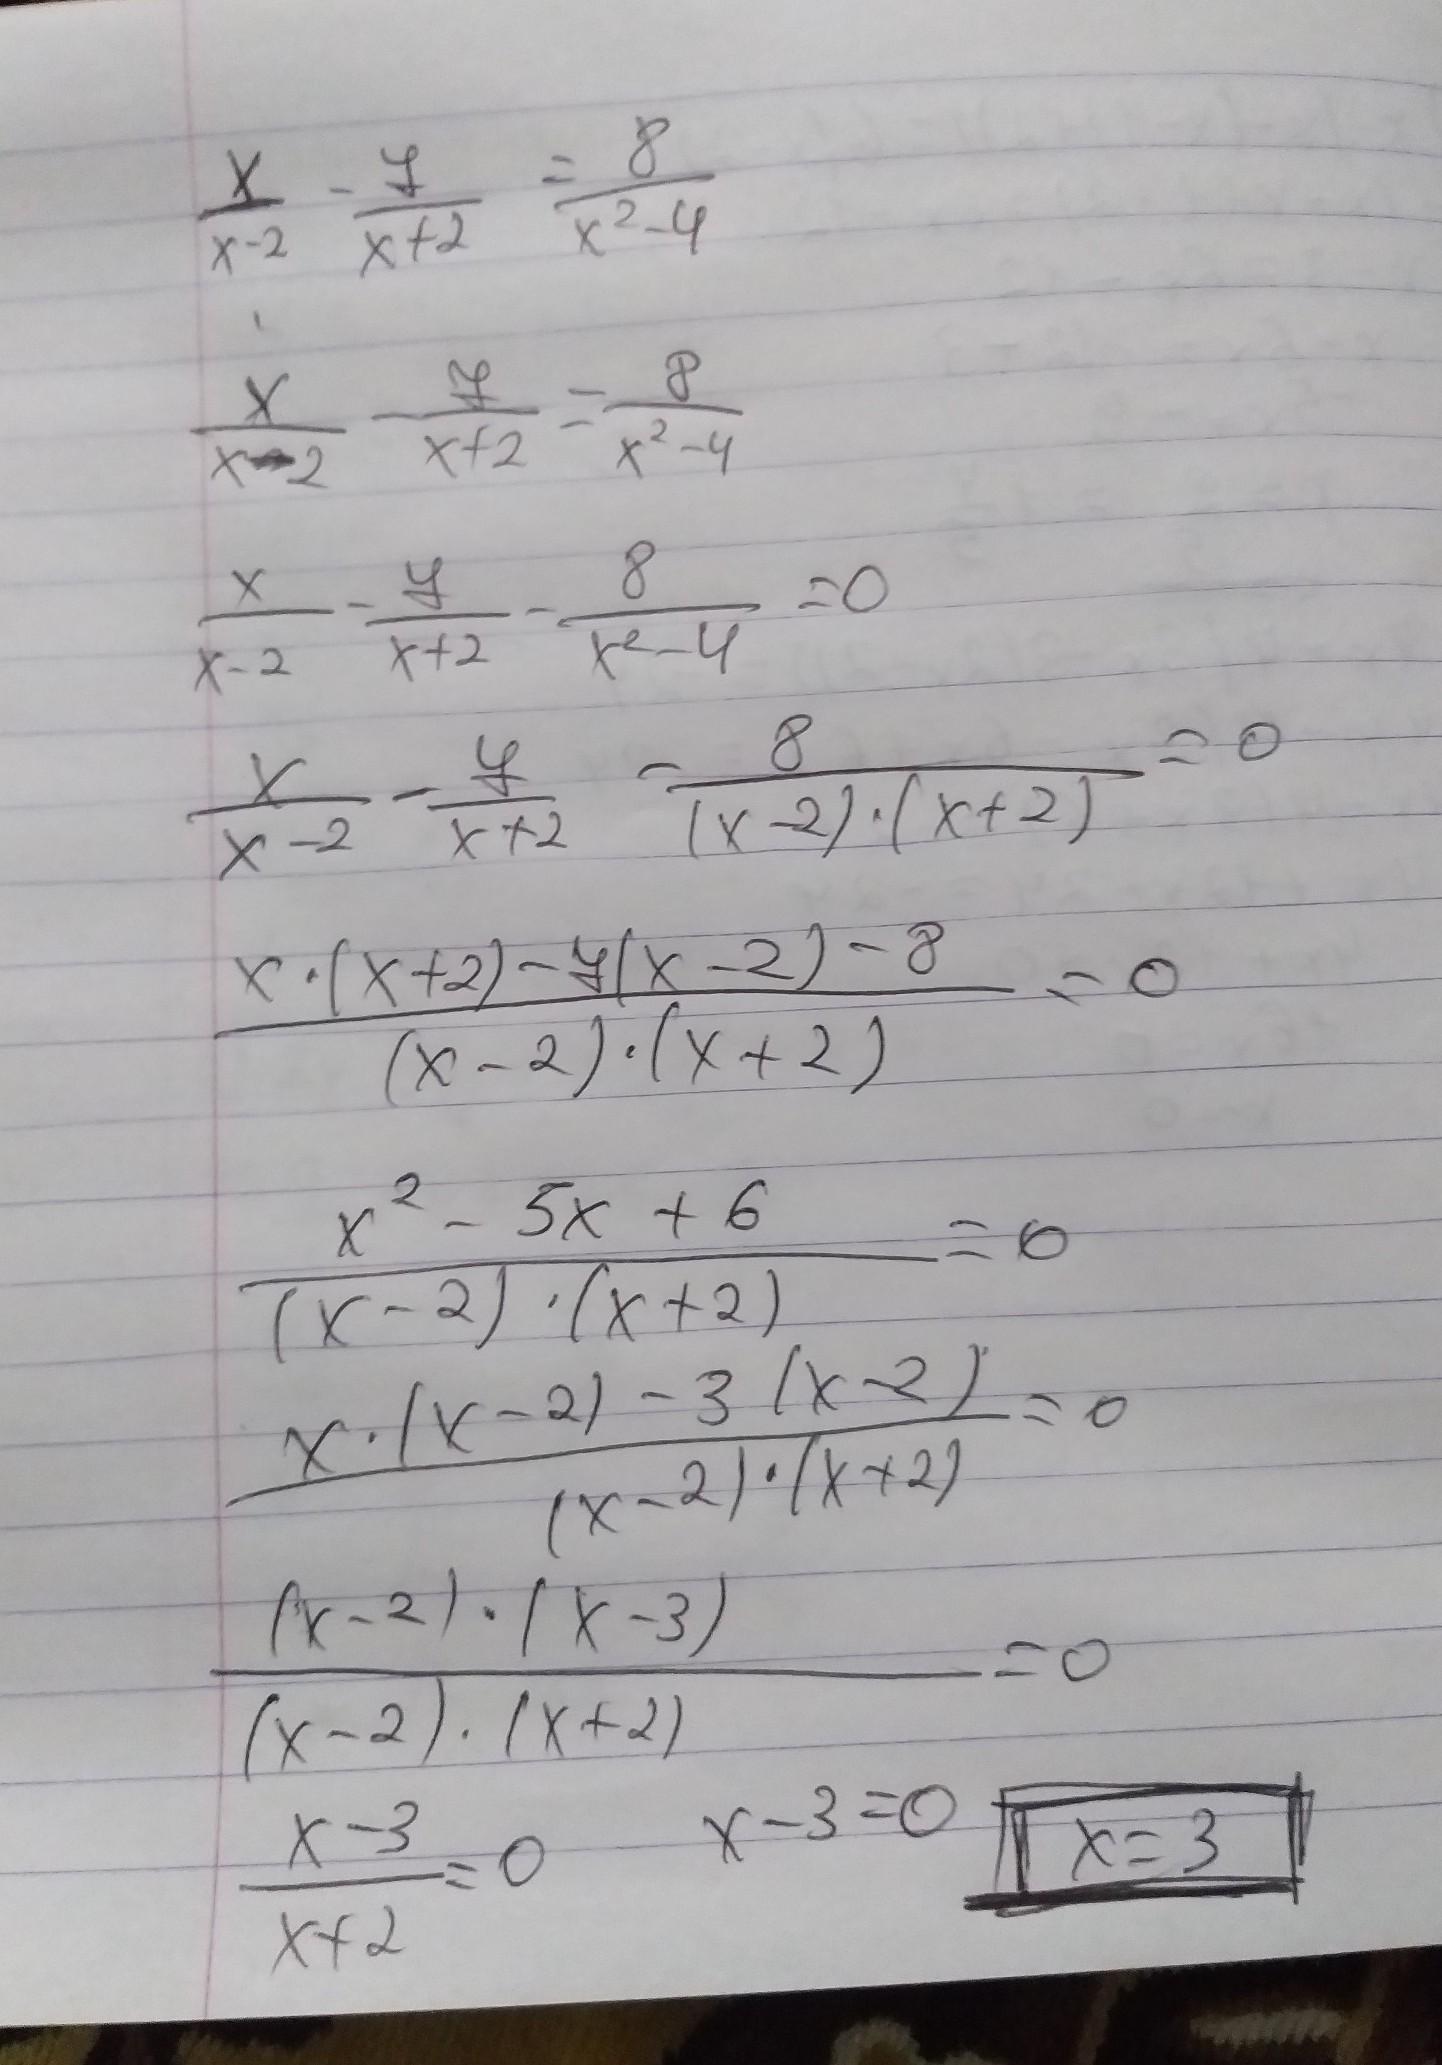 x/(x-2) - 7/(x+2) = 8/(x²-4)
x/(x-2) - 7/(x+2) = 8/(x²-4)
x/(x-2) - 7/(x+2) - 8/(x²-4) = 0
x/(x-2) - 7/(x+2) - 8/((x-2)·(x+2)) = 0
(x·(x+2)-7(x-2)-8)/((x-2)·(x+2)) = 0
(x²-5x+6)/((x-2)·(x+2)) = 0
(x·(x-2)-3(x-2))/((x-2)·(x+2)) = 0
((x-2)·(x-3))/((x-2)·(x+2)) = 0
(x-3)/(x+2) = 0 x-3=0 x=3